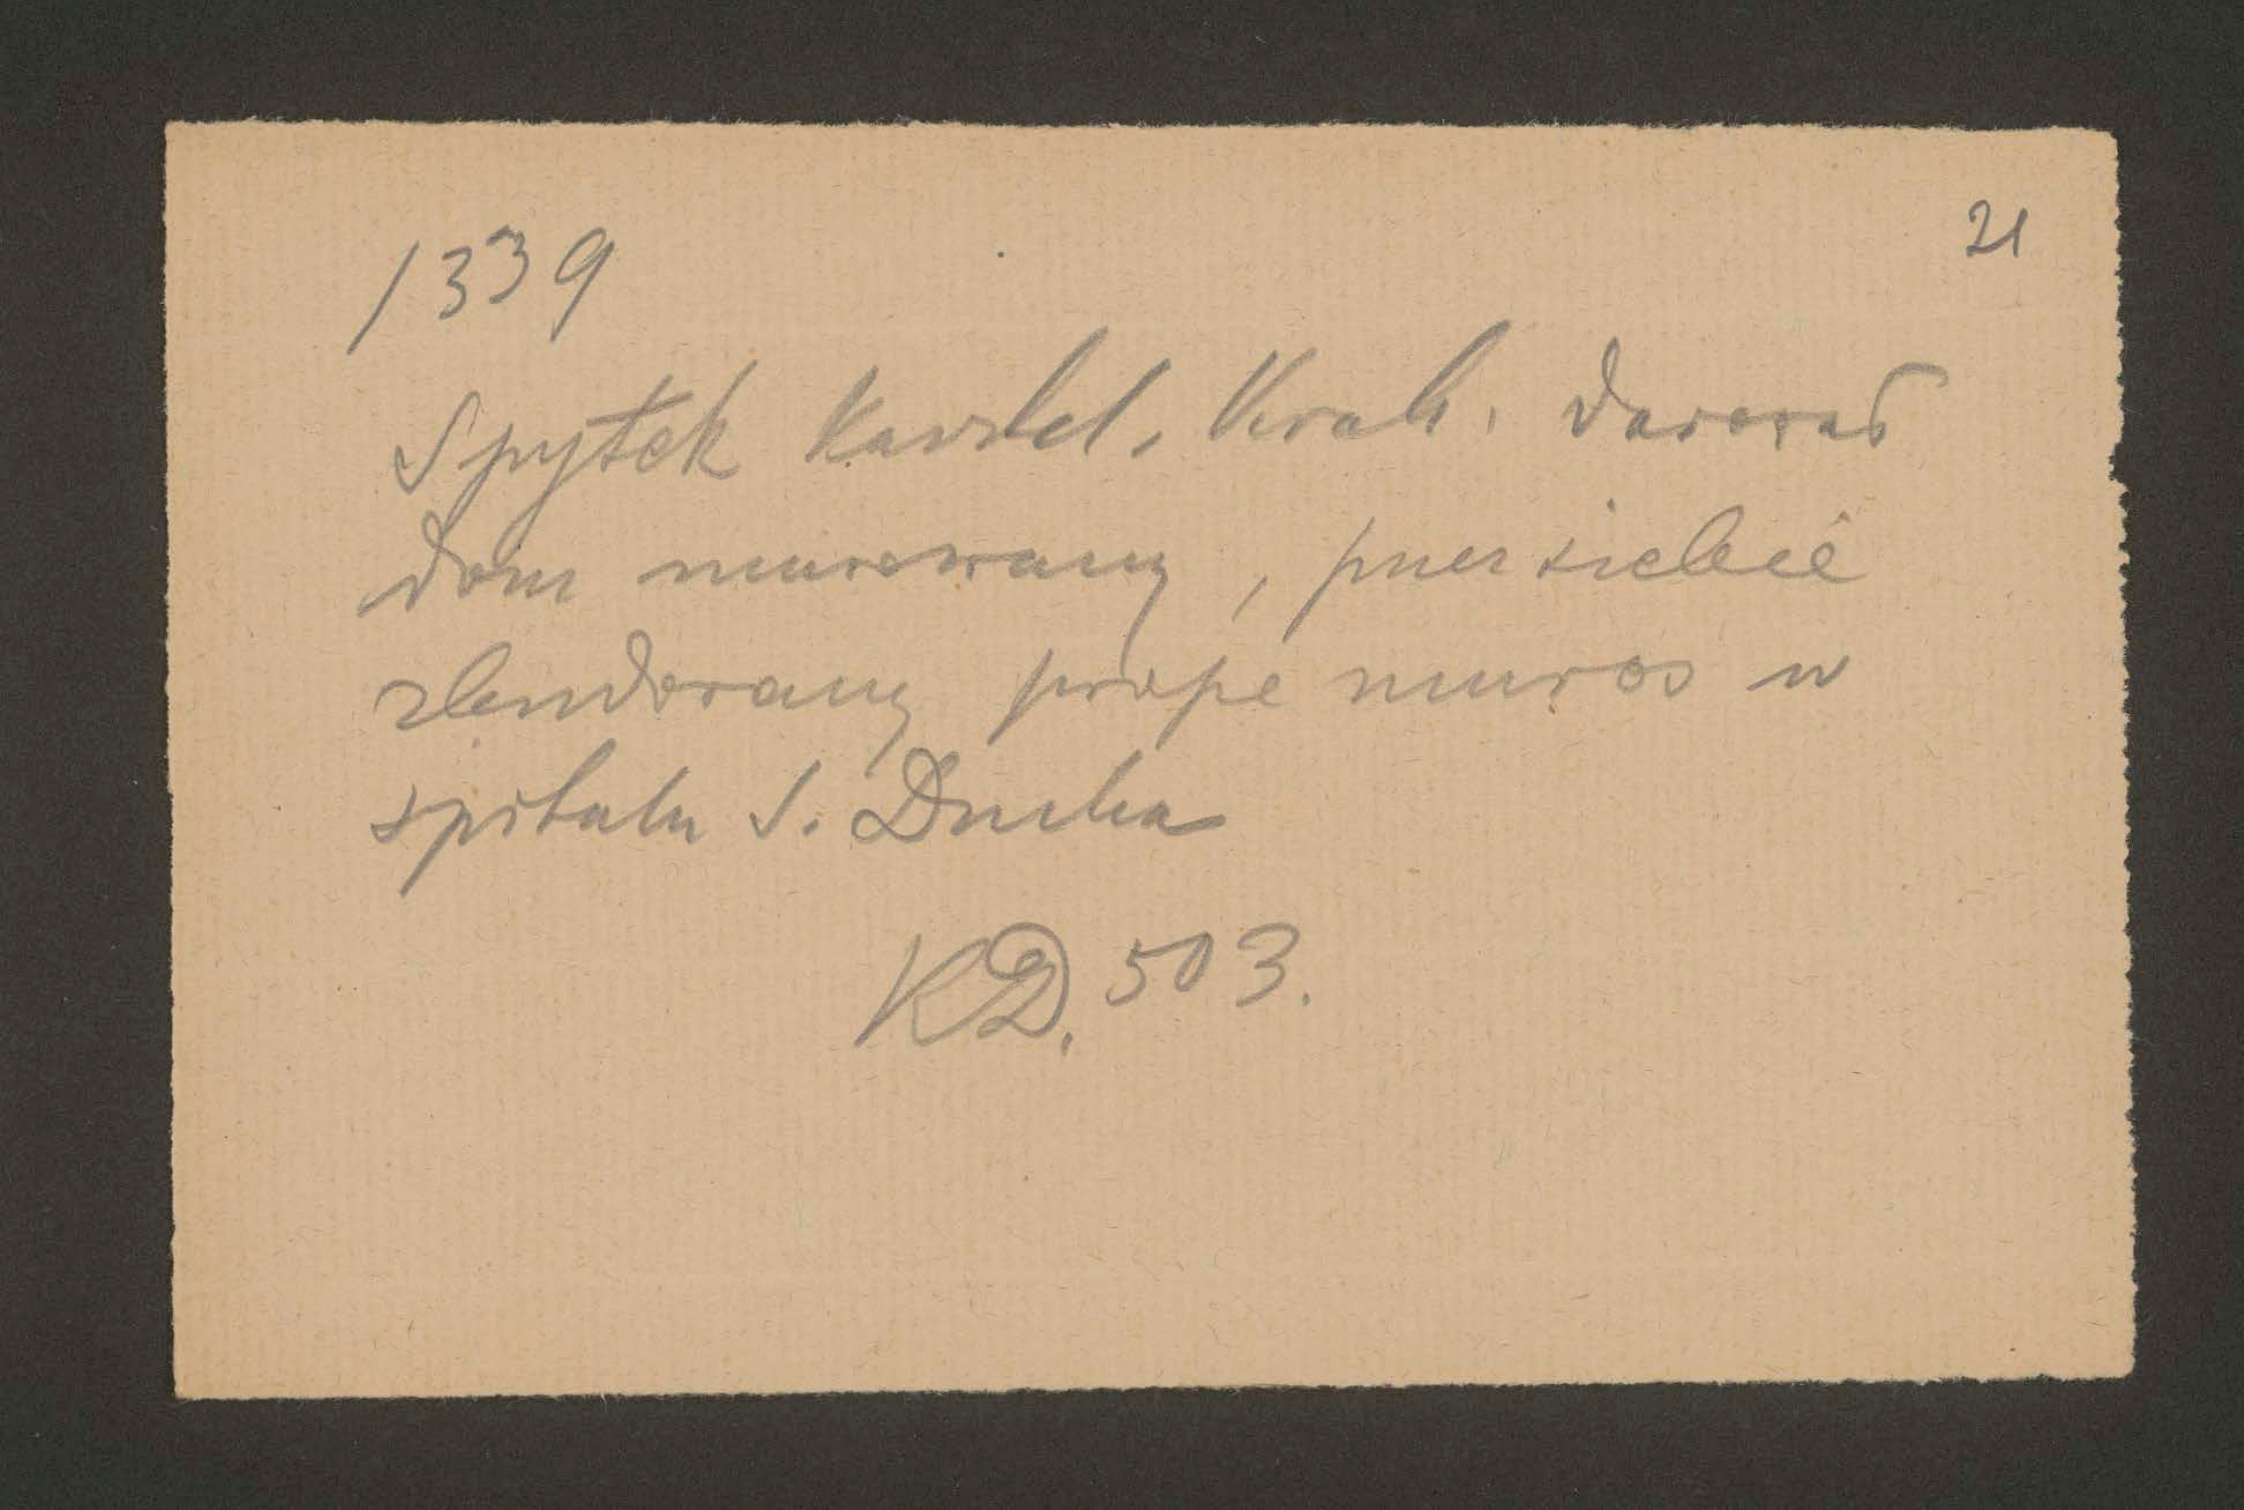 21
1339
Spytek kasztel. Krak. darował
dom murowany, przez siebie
zbudowany prope muros w
szpitalu S. Ducha
KD. 503.